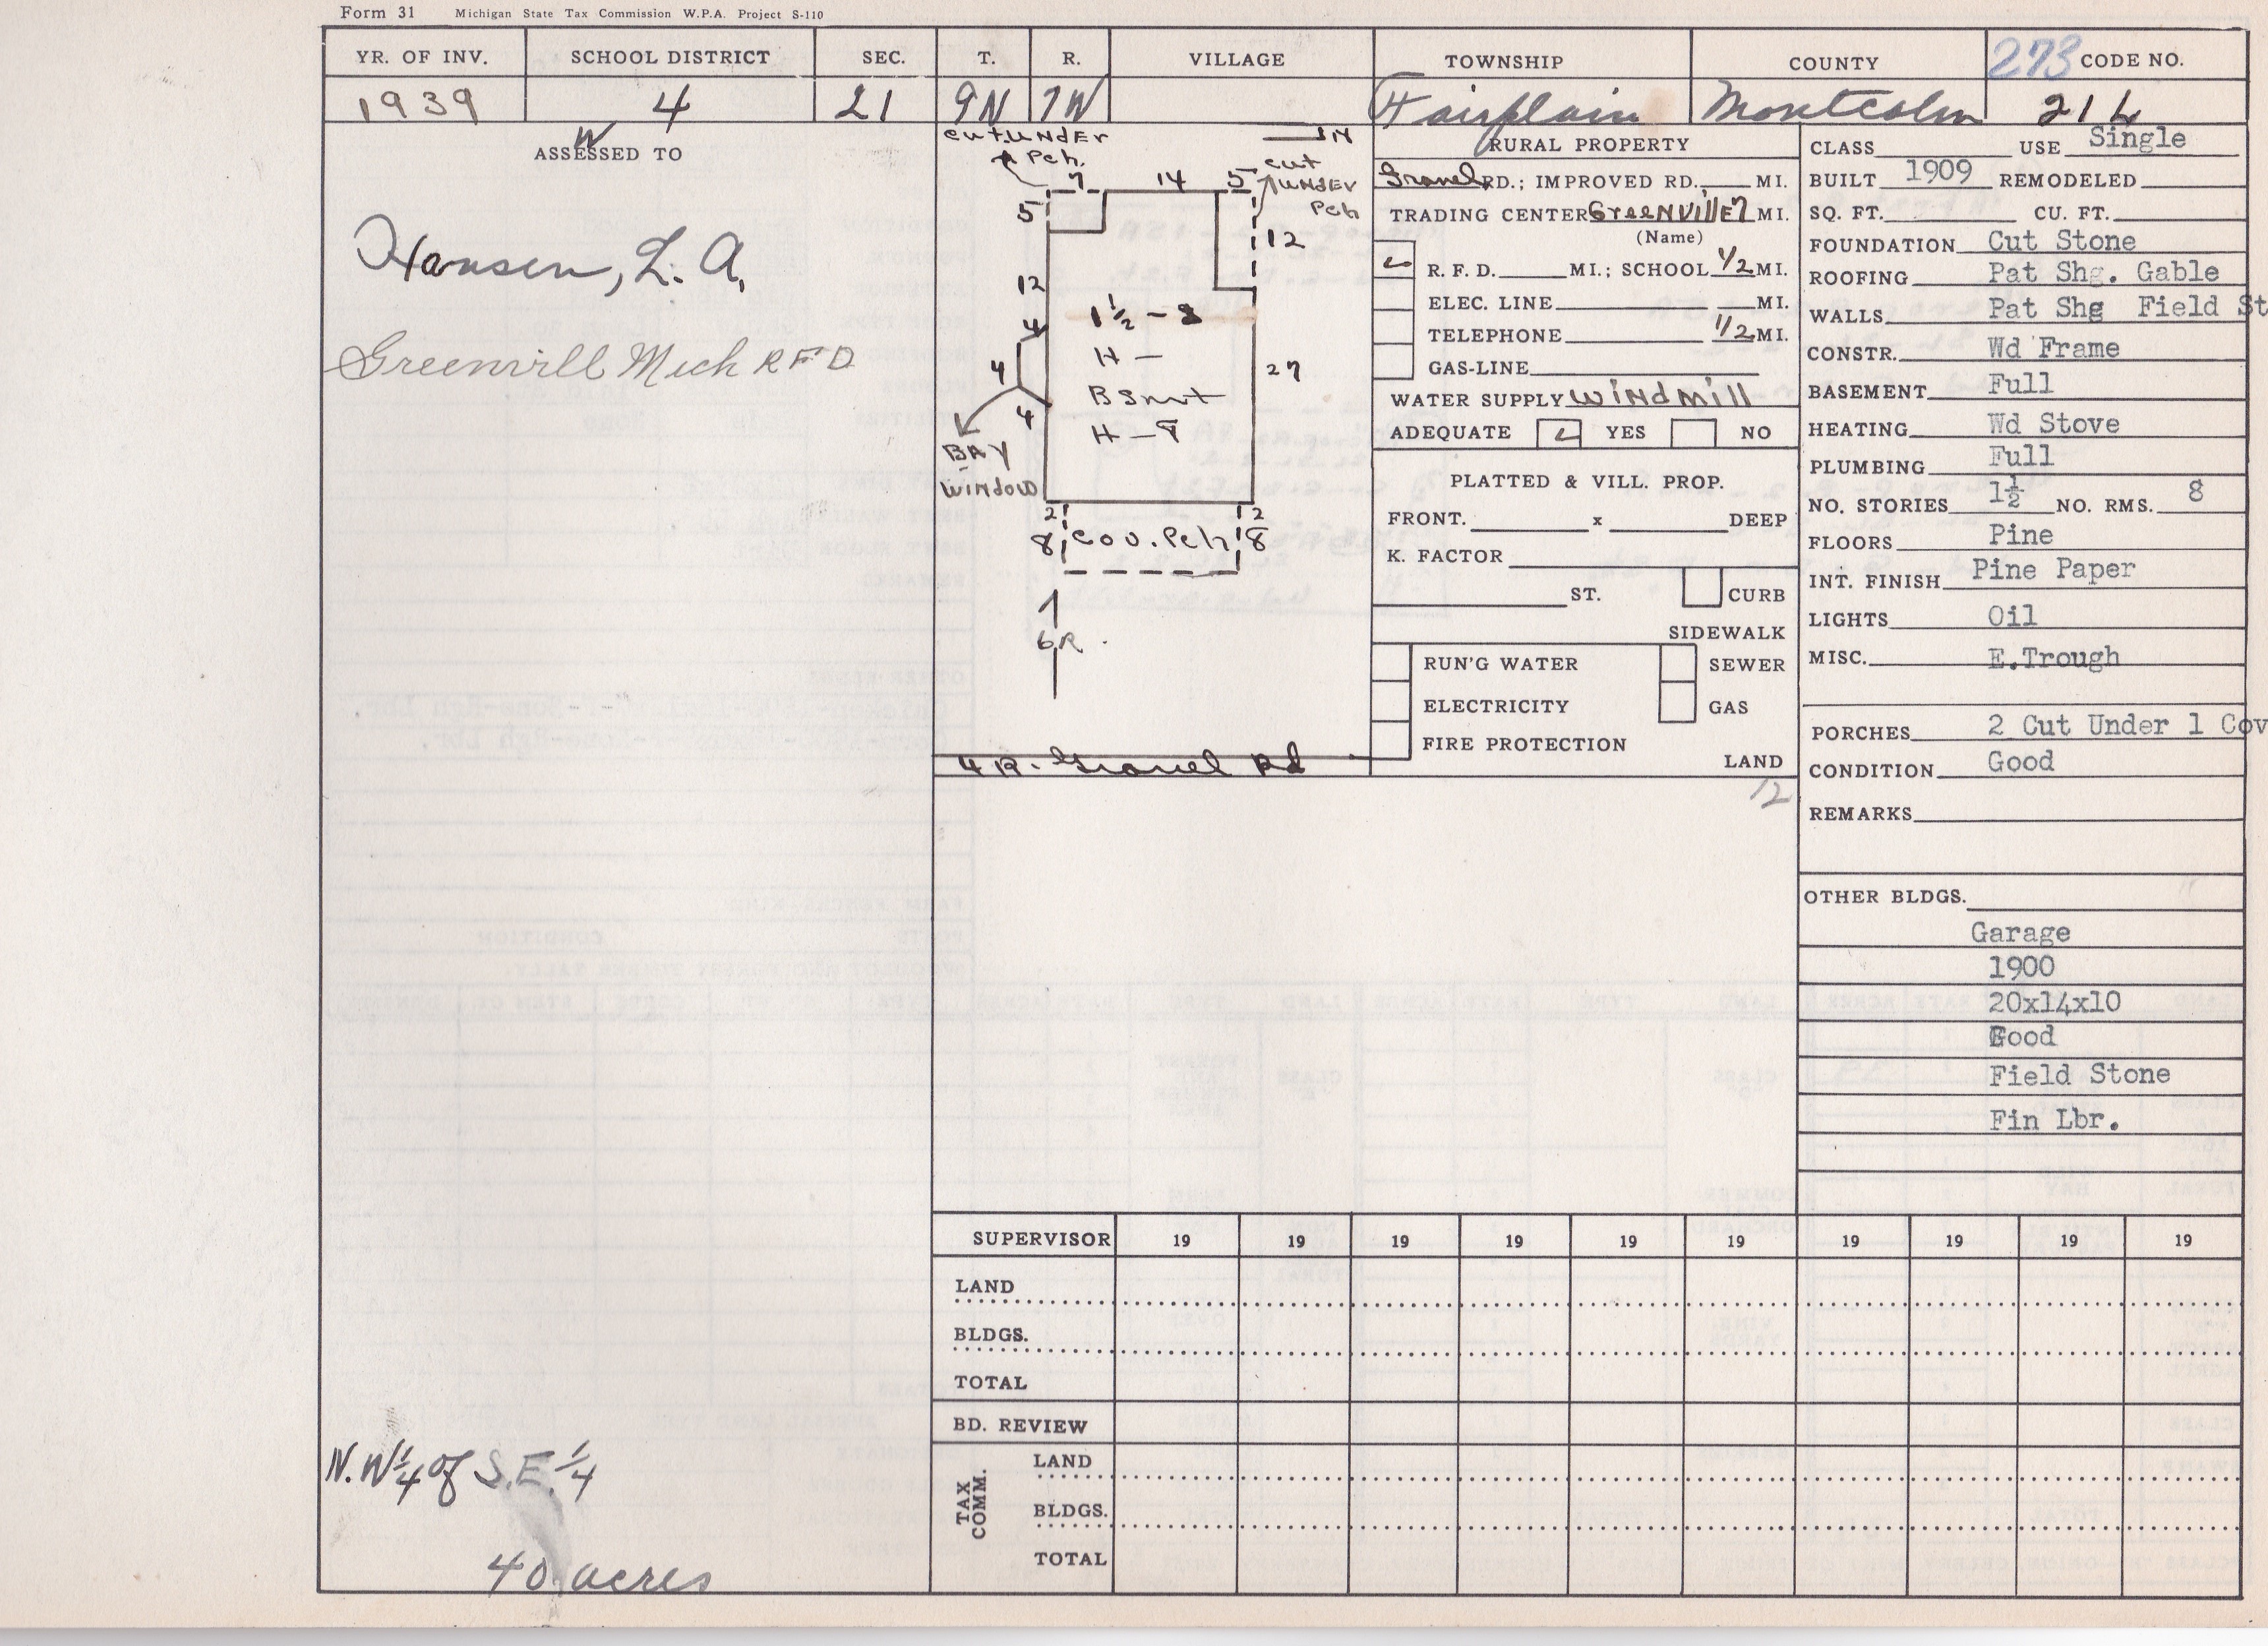 Form 31 Michigan State Tax Commission W.P.A. Project S-110
YR. OF INV. SCHOOL DISTRICT SEC. T. R. VILLAGE TOWNSHIP COUNTY 273 CODE NO.
1939 4 21 9N 7W Fairplain Montcalm 21 L
W
ASSESSED TO
Hansen, L. A.
Greenvill Mich R F D
N.W¼ of S.E.¼
40 acres
cut UNDER
Pch.
N
cut
UNDER
Pch
7 14 5
5
12
12
4
4
4
27
1½ - 8
H -
Bsmt
H - 7
BAY
WINDOW
2 2
8 Cov. Pch 8
6R.
4 R. Gravel Rd
RURAL PROPERTY
Gravel RD.; IMPROVED RD. MI.
TRADING CENTER GREENVILLE 7 MI.
(Name)
R. F. D. MI.; SCHOOL 1/2 MI.
ELEC. LINE MI.
TELEPHONE 1/2 MI.
GAS-LINE
WATER SUPPLY Windmill
ADEQUATE YES NO
PLATTED & VILL. PROP.
FRONT. x DEEP
K. FACTOR
ST. CURB
SIDEWALK
RUN'G WATER SEWER
ELECTRICITY GAS
FIRE PROTECTION
LAND
12
CLASS USE Single
BUILT 1909 REMODELED
SQ. FT. CU. FT.
FOUNDATION Cut Stone
ROOFING Pat Shg. Gable
WALLS Pat Shg Field St
CONSTR. Wd Frame
BASEMENT Full
HEATING Wd Stove
PLUMBING Full
NO. STORIES 1½ NO. RMS. 8
FLOORS Pine
INT. FINISH Pine Paper
LIGHTS Oil
MISC. E.Trough
PORCHES 2 Cut Under 1 Cov
CONDITION Good
REMARKS
OTHER BLDGS.
Garage
1900
20x14x10
Good
Field Stone
Fin Lbr.
SUPERVISOR 19 19 19 19 19 19 19 19 19 19
LAND
BLDGS.
TOTAL
BD. REVIEW
TAX COMM.
LAND
BLDGS.
TOTAL